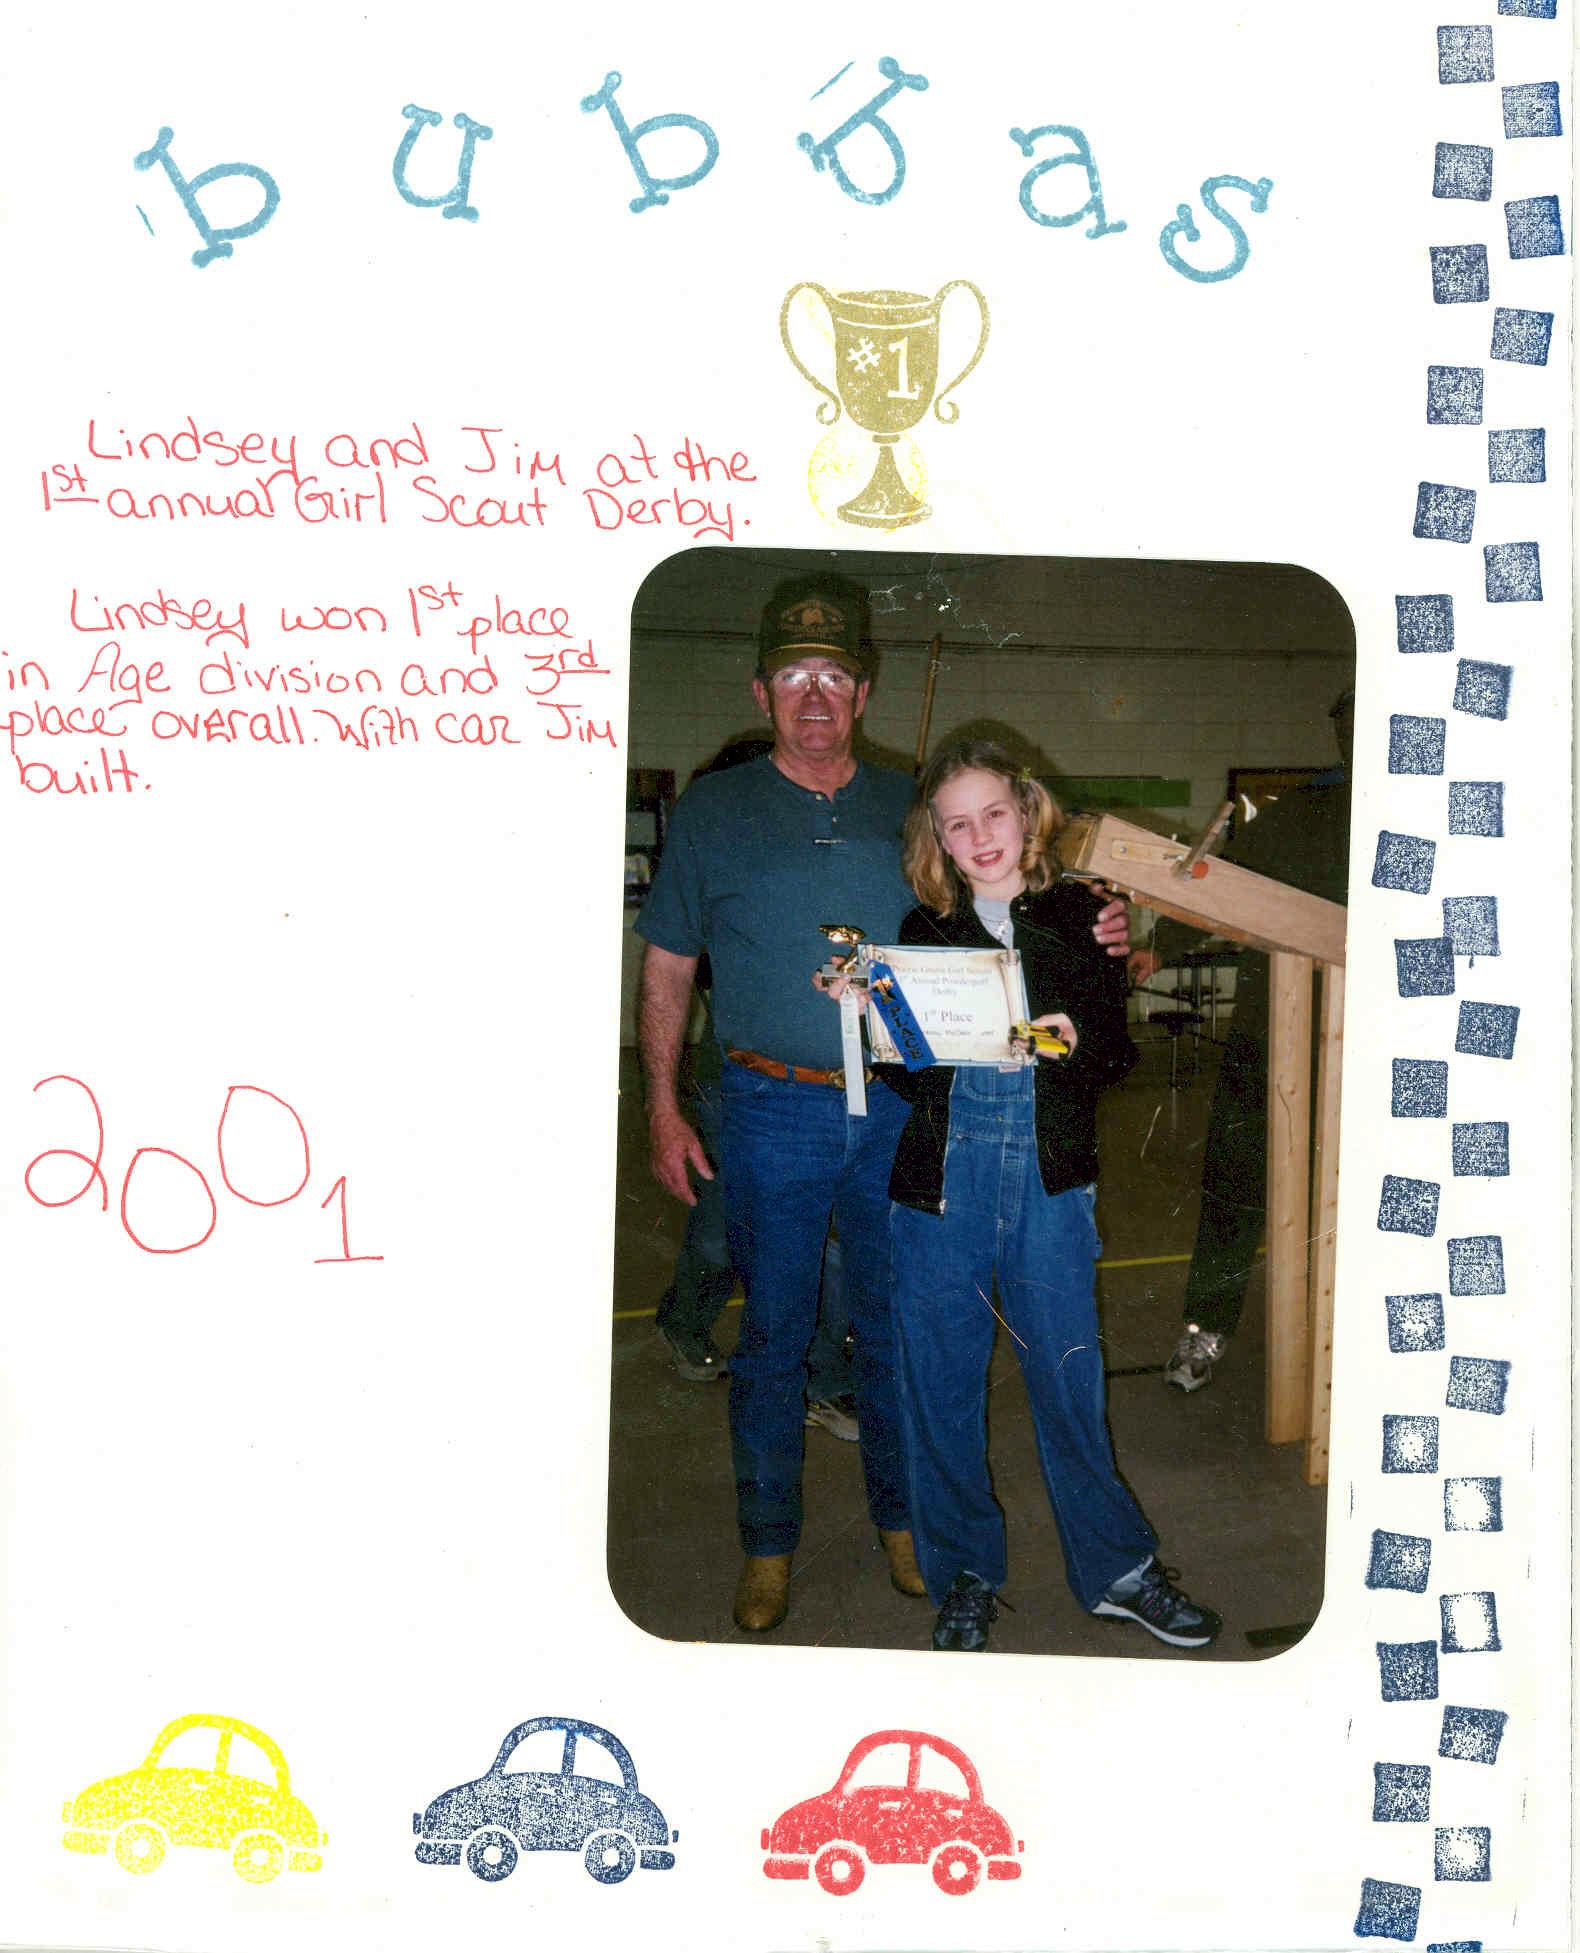 bubbas
#1
Lindsey and Jim at the
1st annual Girl Scout Derby.
Lindsey won 1st place
in Age division and 3rd
place overall. With car Jim
built.
2001
Prairie Grove Girl Scouts
1st Annual Powderpuff
Derby
1st Place